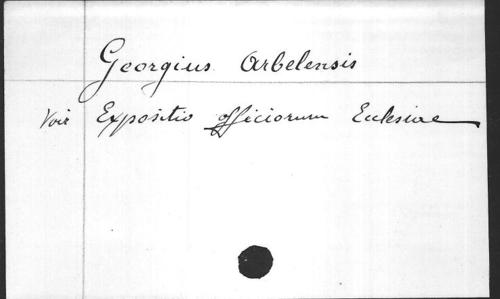 Georgius Arbelensis
Voir Expositio officiorum Eclesiae